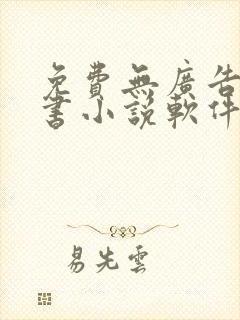 免費無廣告
書小說軟件
易先雲